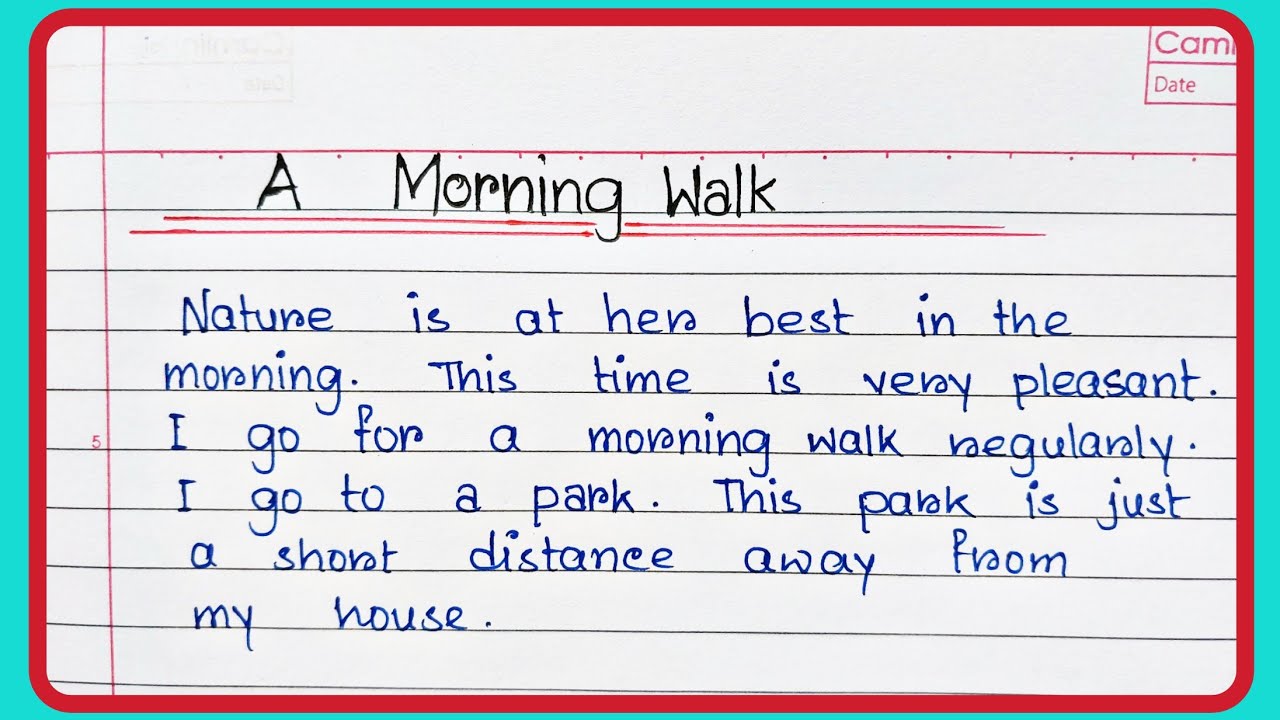 Cam
Date
A Morning Walk
Nature is at her best in the
morning. This time is very pleasant.
5
I go for a morning walk regularly.
I go to a park. This park is just
a short distance away from
my house.